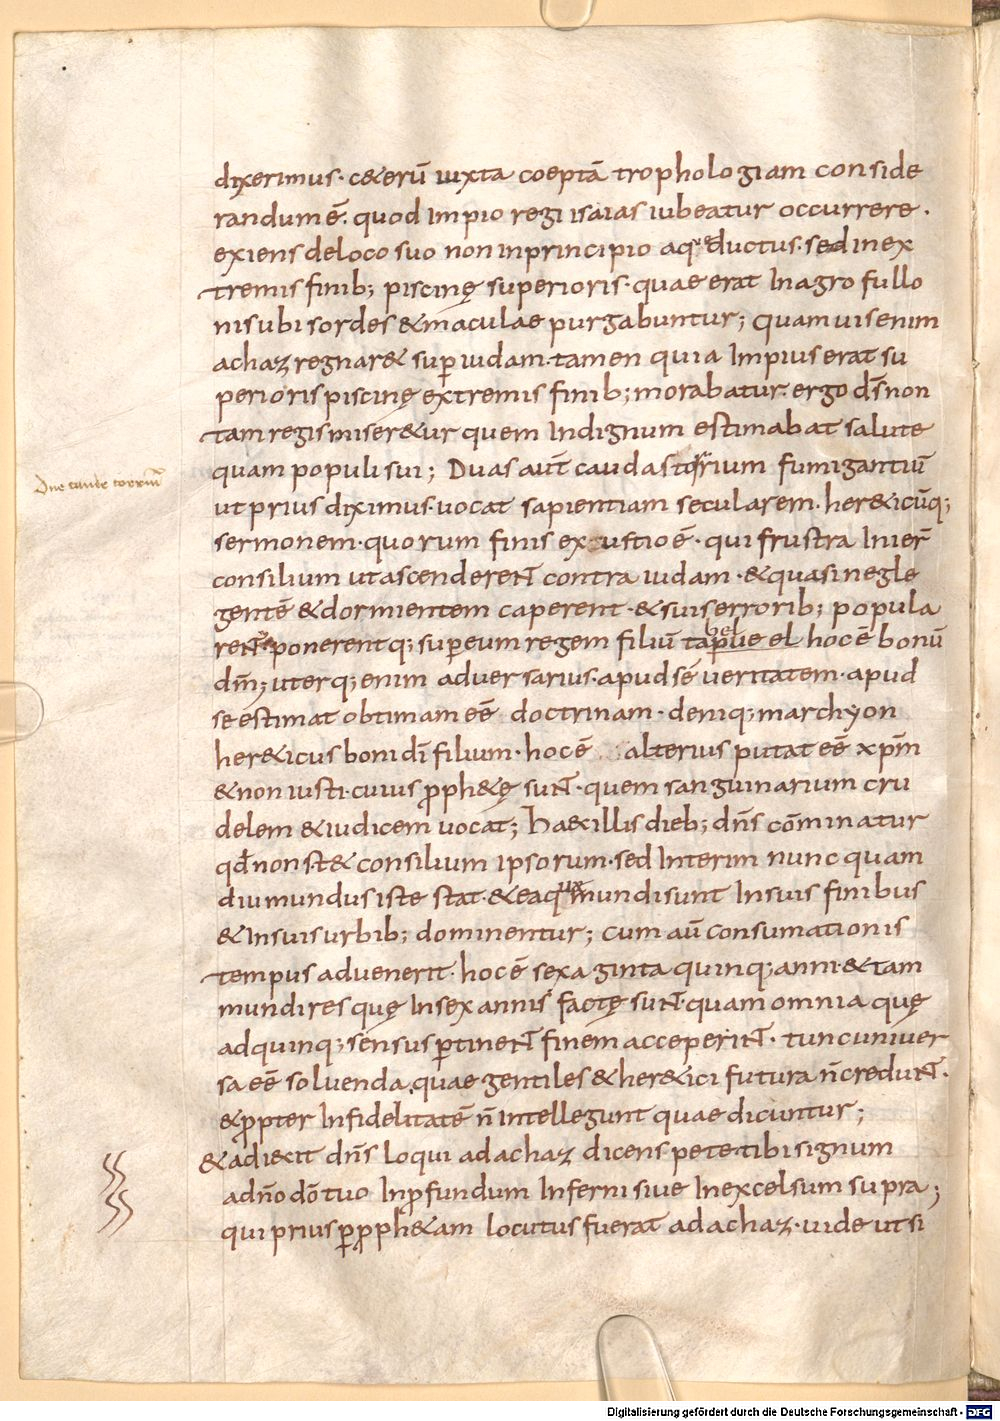 dixerimus· c&erū iuxta coeptā trophologiam conside
randum ē. quod impio regi isaias iubeatur occurrere·
exiens de loco suo non in principio aquęductus· sed in ex
tremis finib; piscinę superioris· quae erat In agro fullo
nis ubi sordes & maculae purgabuntur; quam uis enim
achaz regnar& sup iudam· tamen quia Impius erat su
perioris piscinę extremis finib; morabatur· ergo dſ non
tam regis miser&ur quem Indignum estimabat salute
quam populi sui; Duas aūt caudas torrium fumigantiū
ut prius diximus· uocat sapientiam secularem· her&icūq;
sermonem· quorum finis exustio ē· qui frustra Inier̄
consilium ut ascenderent contra iudam· & quasi negle
gentē & dormientem caperent· & suis errorib; popula
rent· ponerentq; sup eum regem filiū tabeel hoc ē bonū
dm̄; uterq; enim aduersarius· apud sē ueritatem· apud
se estimat obtimam eē doctrinam· deniq; marchyon
her&icus boni dī filium· hoc ē alterius putat eē xpm̄
& non iusti· cuius pph&ę sunt· quem sanguinarium cru
delem & iudicem uocat; Haec illis dieb; dn̄s cōminatur
qd non st& consilium ipsorum· sed Interim nunc quam
diu mundus iste stat· & eaquae mundi sunt In suis finibus
& In suis urbib; dominentur; cum aū consumationis
tempus aduenerit· hoc ē sexaginta quinq; anni· & tam
mundi res quę In sex annis factę sunt· quam omnia quę
ad quinq; sensus ptinent finem acceperint· tunc uniuer
sa eē soluenda, quae gentiles & her&ici futura n̄ credunt·
& ppter Infidelitatē n̄ Intellegunt quae dicuntur;
& adiecit dn̄s loqui ad achaz dicens pete tibi signum
a dn̄o dō tuo In pfundum Inferni siue In excelsum supra;
qui prius p pph&am locutus fuerat ad achaz· uide ut si
Due caude torriū
Digitalisierung gefördert durch die Deutsche Forschungsgemeinschaft - DFG